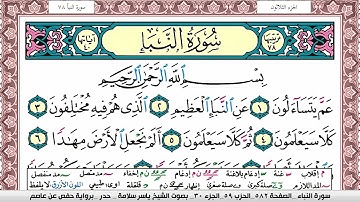 سورة النبأ ٧٨
الجزء الثلاثون
سُورَةُ النَّبَإِ
بِسْمِ اللَّهِ الرَّحْمَٰنِ الرَّحِيمِ
عَمَّ يَتَسَاءَلُونَ ١ عَنِ النَّبَإِ الْعَظِيمِ ٢ الَّذِي هُمْ فِيهِ مُخْتَلِفُونَ ٣
كَلَّا سَيَعْلَمُونَ ٤ ثُمَّ كَلَّا سَيَعْلَمُونَ ٥ أَلَمْ نَجْعَلِ الْأَرْضَ مِهَادًا ٦
سورة النباء الصفحة ٥٨٢ الحزب ٥٩ الجزء ٣٠ بصوت الشيخ ياسر سلامة حدر برواية حفص عن عاصم